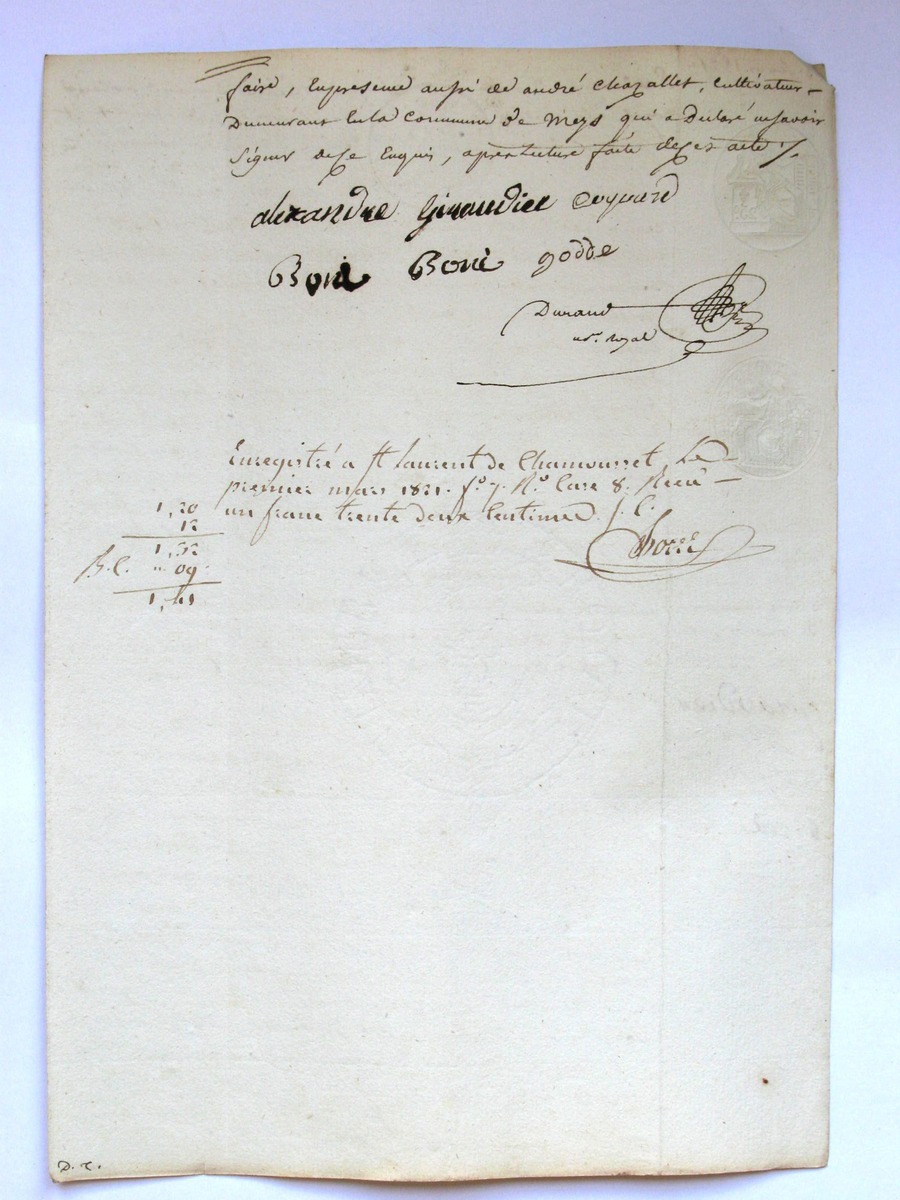 faire, En presence aussi de andré Chazallet, Cultivateur
Demeurant En la Commune de Meys qui a Declaré ne savoir
Signer de ce Enquis, apres lecture faite de ces acte ./.
alexandre Giraudier Coquard
Boni Boni godde
Durand
nre. royal
Enregistré a St Laurent de Chamousset Le
premier mars 1821. fo. 7. Ro. Case 8. Reçu
un franc trente deux Centimes. J. C.
1,20
12
1,32
B. C. " 09
1,41
D. C.